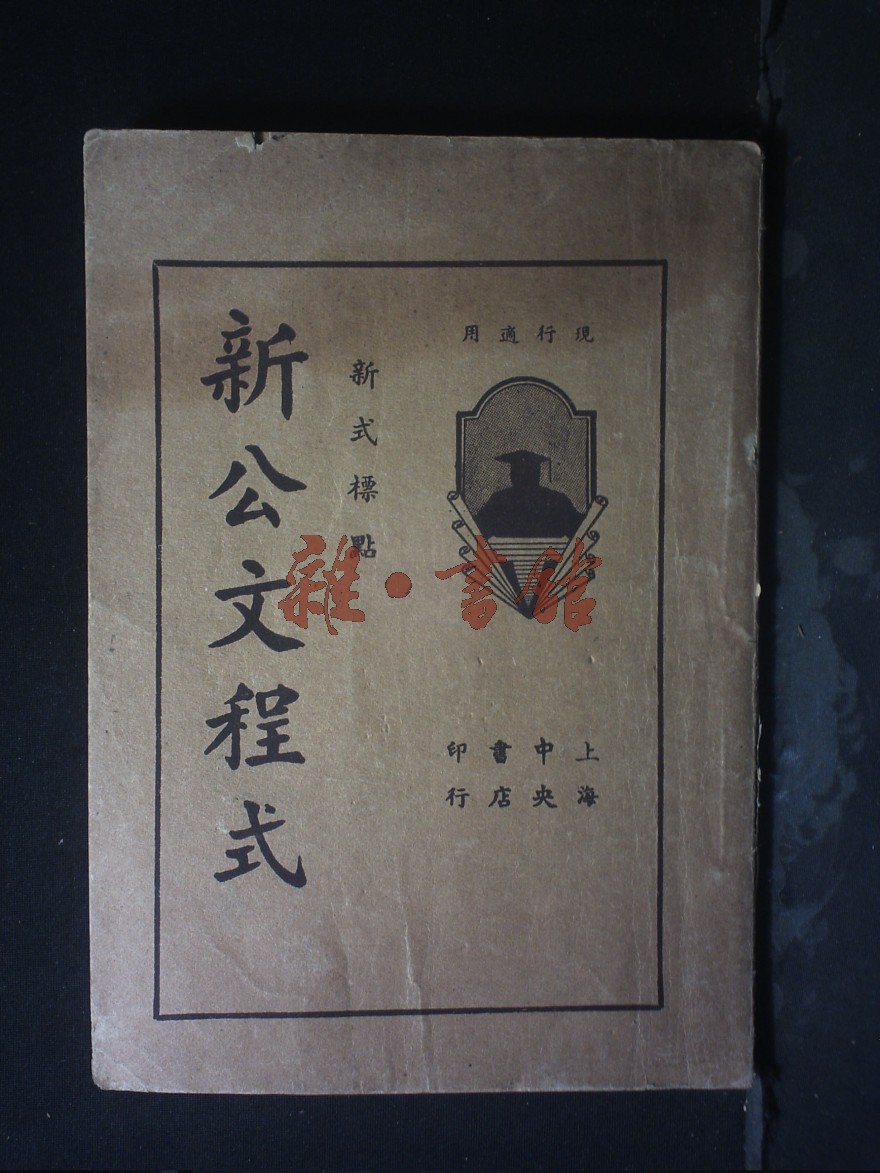 現行適用
上海
中央
書店
印行
新式標點
新公文程式
雜·書館